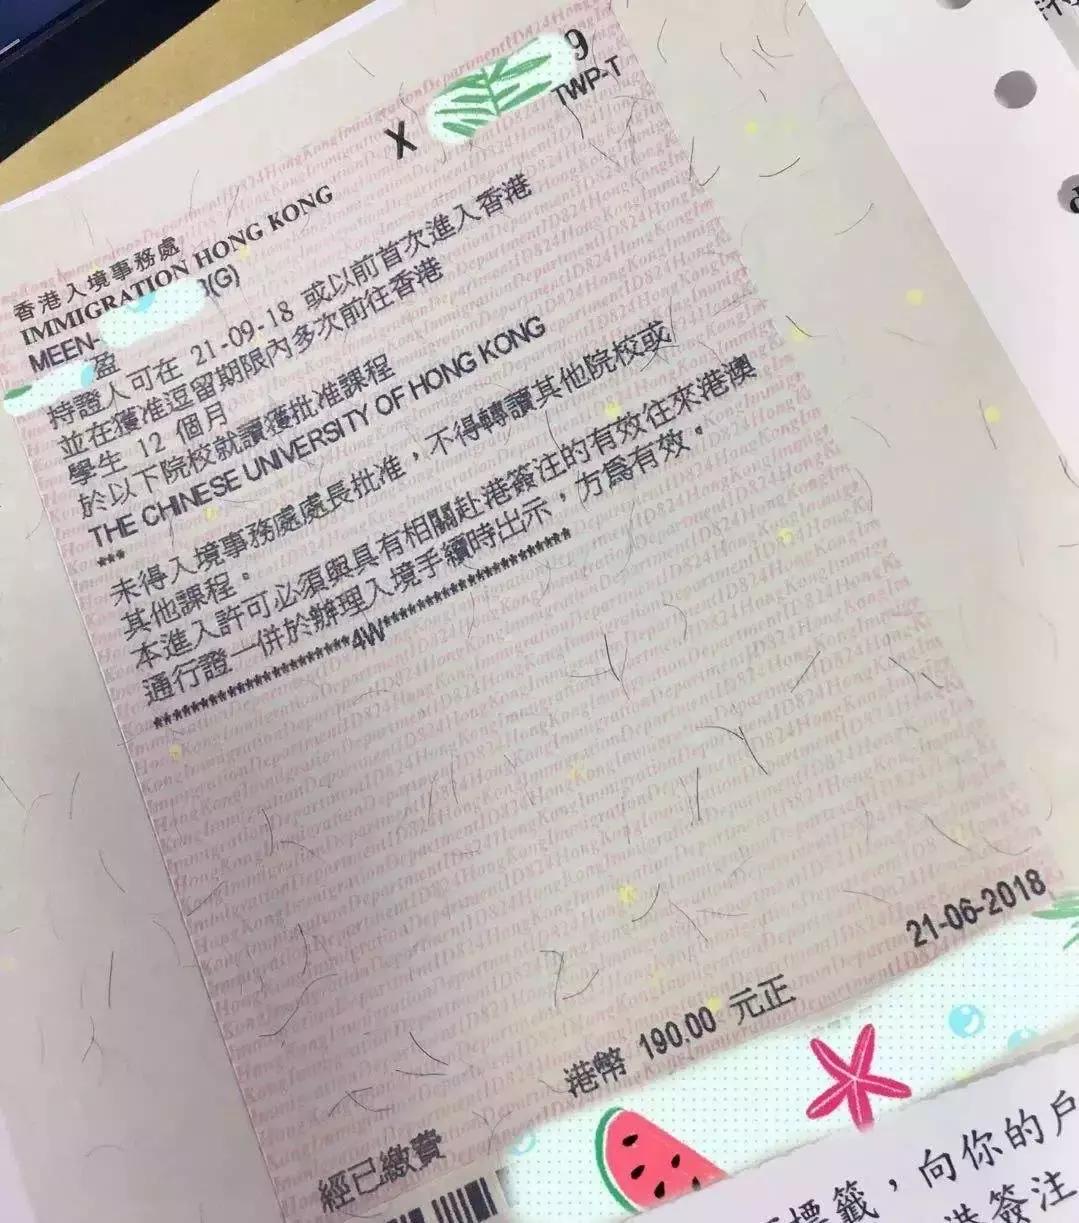 X
9
TWP-T
香港入境事務處
IMMIGRATION HONG KONG
MEEN-
3(G)
盈
持證人可在 21-09-18 或以前首次進入香港
並在獲准逗留期限內多次前往香港
學生 12 個月
於以下院校就讀獲批准課程
THE CHINESE UNIVERSITY OF HONG KONG
***
未得入境事務處處長批准，不得轉讀其他院校或
其他課程。
本進入許可必須與具有相關赴港簽注的有效往來港澳
通行證一併於辦理入境手續時出示，方為有效。
********************4W********************
21-06-2018
港幣 190.00 元正
經已繳費
標籤，向你的戶
簽注